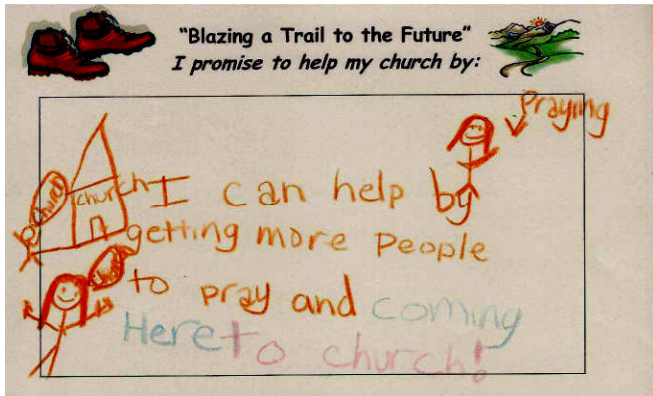 "Blazing a Trail to the Future"
I promise to help my church by:
Praying
church
church
I can help by
getting more People
to pray and coming
Here to church!